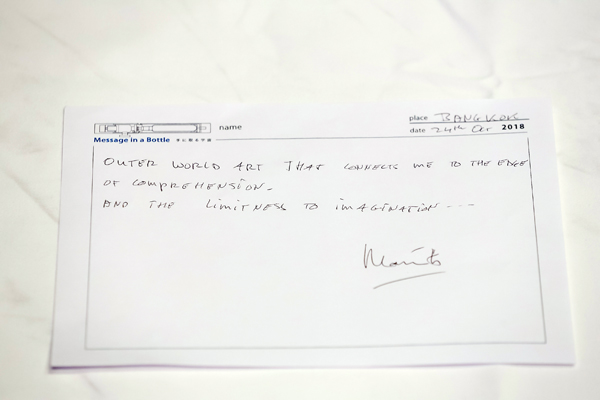 place BANGKOK
name
date 24th Oct 2018
Message in a Bottle
OUTER WORLD ART THAT CONNECTS ME TO THE EDGE
OF COMPREHENSION.
AND THE LIMITNESS TO IMAGINATION ---